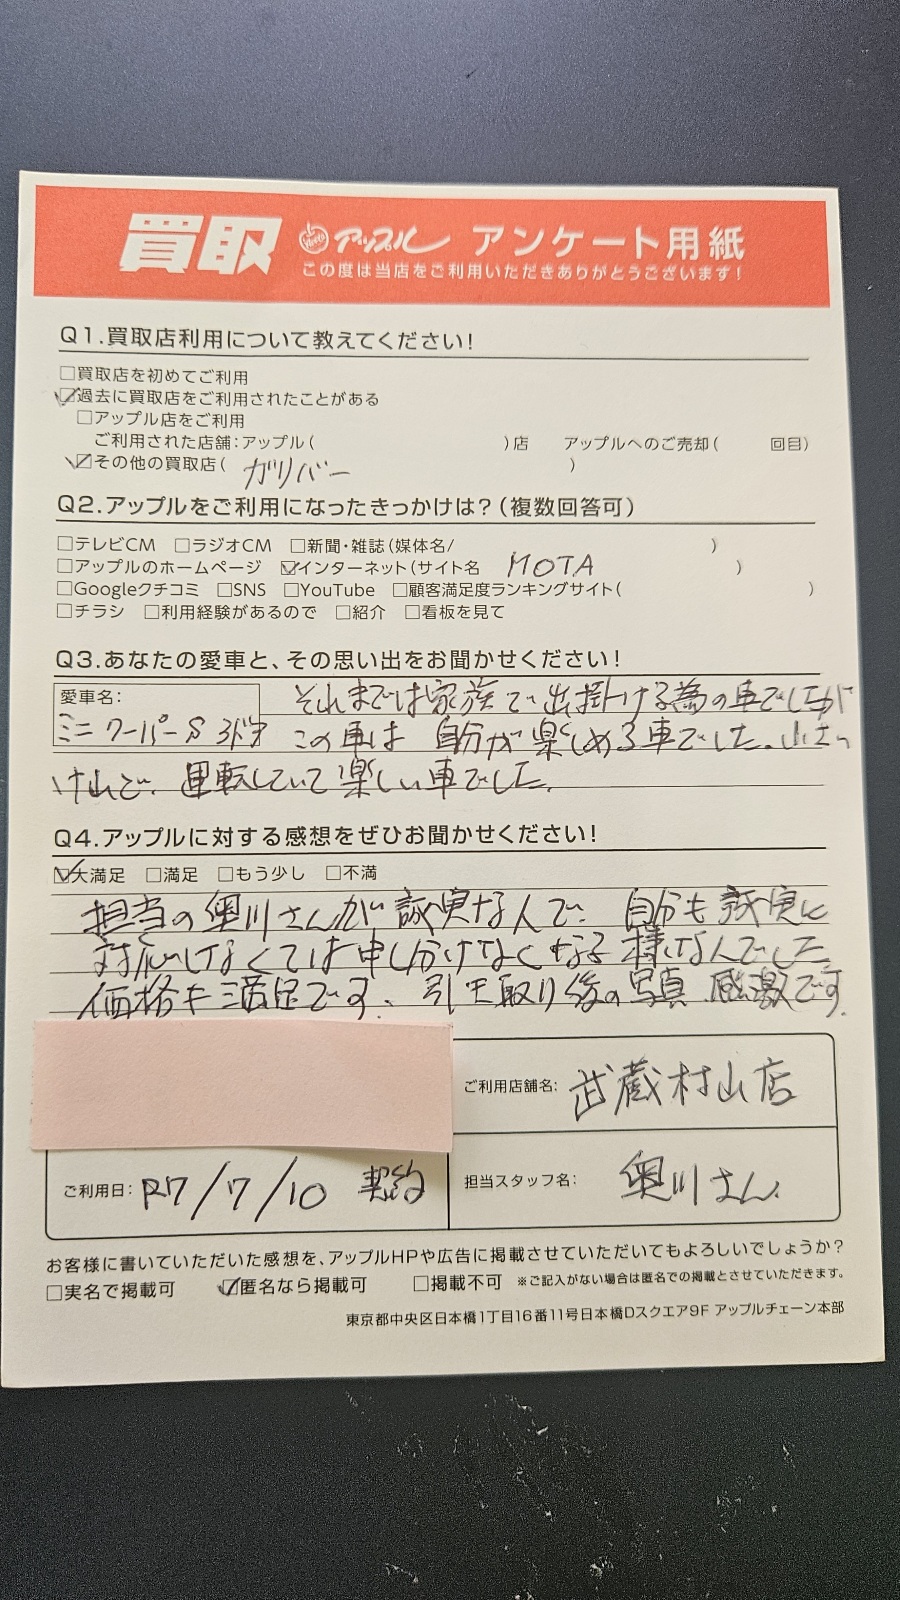 買取 アップル アンケート用紙
この度は当店をご利用いただきありがとうございます!
Q1.買取店利用について教えてください!
□買取店を初めてご利用
☑過去に買取店をご利用されたことがある
□アップル店をご利用
ご利用された店舗:アップル( )店 アップルへのご売却( 回目)
☑その他の買取店( ガリバー )
Q2.アップルをご利用になったきっかけは?(複数回答可)
□テレビCM □ラジオCM □新聞・雑誌(媒体名/ )
□アップルのホームページ ☑インターネット(サイト名 MOTA )
□Googleクチコミ □SNS □YouTube □顧客満足度ランキングサイト( )
□チラシ □利用経験があるので □紹介 □看板を見て
Q3.あなたの愛車と、その思い出をお聞かせください!
愛車名: それまでは家族で出掛ける為の車でしたが
ミニ クーパーS 3ドア この車は 自分が楽しめる車でした。小さい
けれど、運転していて楽しい車でした。
Q4.アップルに対する感想をぜひお聞かせください!
☑大満足 □満足 □もう少し □不満
担当の奥川さんが誠実な人で、自分も誠実に
対応しなくては申し分けなくなる様な人でした
価格も満足です。引き取り後の写真 感激です。
ご利用店舗名: 武蔵村山店
ご利用日: R7/7/10 契約 担当スタッフ名: 奥川さん
お客様に書いていただいた感想を、アップルHPや広告に掲載させていただいてもよろしいでしょうか?
□実名で掲載可 ☑匿名なら掲載可 □掲載不可 ※ご記入がない場合は匿名での掲載とさせていただきます。
東京都中央区日本橋1丁目16番11号日本橋Dスクエア9F アップルチェーン本部